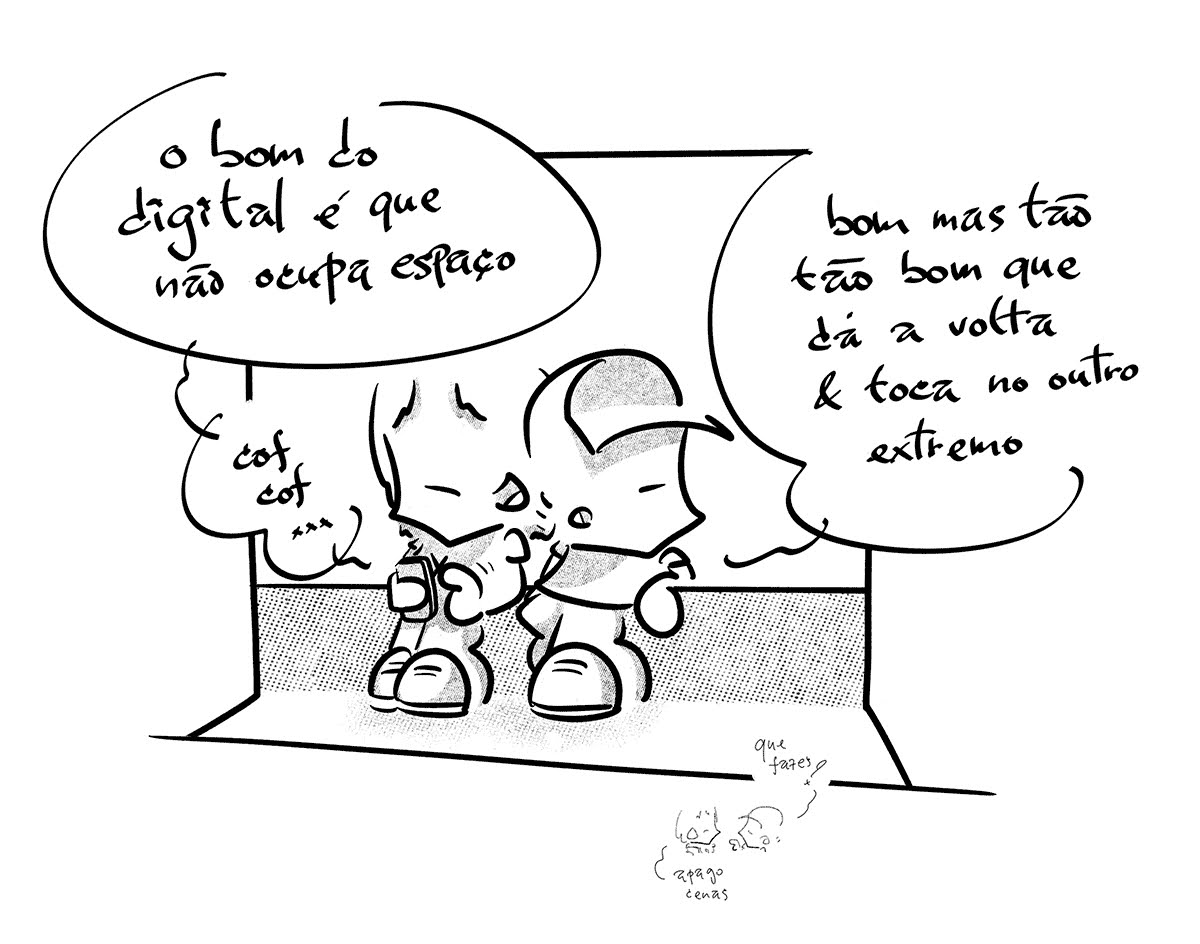 o bom do
digital é que
não ocupa espaço
cof
cof
×××
bom mas tão
tão bom que
dá a volta
& toca no outro
extremo
que
fazes?
apago
cenas